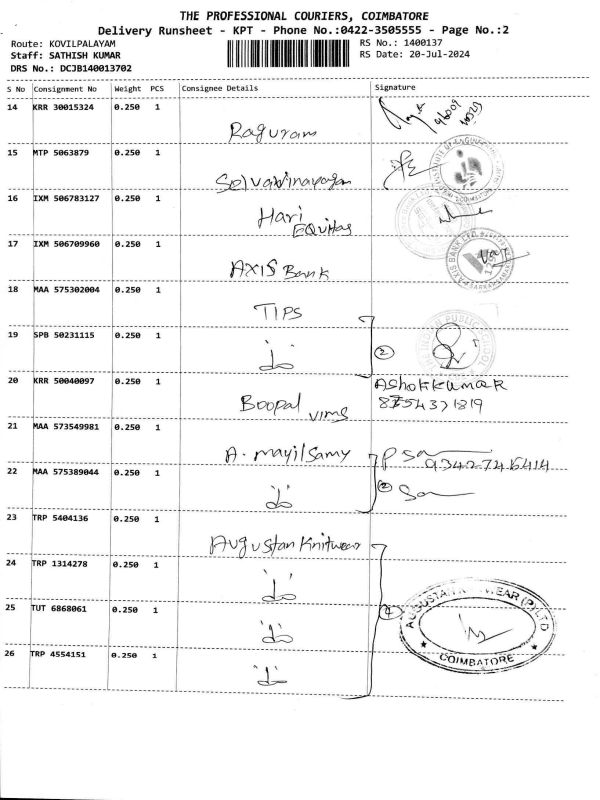 THE PROFESSIONAL COURIERS, COIMBATORE
Delivery Runsheet - KPT - Phone No.:0422-3505555 - Page No.:2
Route: KOVILPALAYAM
Staff: SATHISH KUMAR
DRS No.: DCJB140013702
RS No.: 1400137
RS Date: 20-Jul-2024
S No Consignment No Weight PCS Consignee Details Signature
14 KRR 30015324 0.250 1
Raguram
15 MTP 5063879 0.250 1
Selvavinayagan
16 IXM 506783127 0.250 1
Hari
EQuitas
17 IXM 506709960 0.250 1
AXIS Bank
18 MAA 575302004 0.250 1
TIPS
19 SPB 50231115 0.250 1
②
PUBLIC SCHOOL
20 KRR 50040097 0.250 1
Boopal vims
AShokkumar
8754371819
21 MAA 573549981 0.250 1
A. mayilSamy
9342746414
22 MAA 575389044 0.250 1
②
23 TRP 5404136 0.250 1
Augustan Knitwear
24 TRP 1314278 0.250 1
25 TUT 6868061 0.250 1
④
WEAR (P) LTD
COIMBATORE
26 TRP 4554151 0.250 1